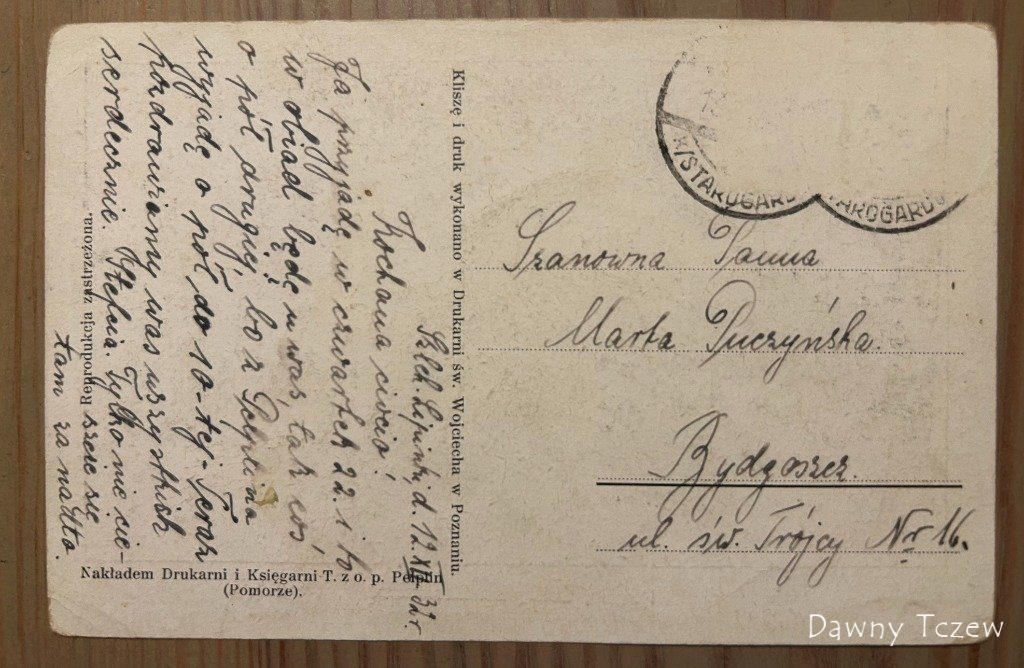 Szlach. Lipinki, d. 12.XII 32 r.
Kochana ciocio!
Ja przyjadę w czwartek 22. i to
w obiad będę u was, tak coś
o pół drugiej, bo z Pelplina
wyjadę o pół do 10-tej. Teraz
pozdrawiamy was wszystkich
serdecznie. Stefcia. Tylko nie cie-
szcie się
tam za nadto.
Reprodukcja zastrzeżona.
Nakładem Drukarni i Księgarni T. z o. p. Pelplin
(Pomorze).
Kliszę i druk wykonano w Drukarni św. Wojciecha w Poznaniu.
K/STAROGARD
STAROGARD
Szanowna Panna
Marta Puczyńska.
Bydgoszcz.
ul. św. Trójcy Nr 16.
Dawny Tczew